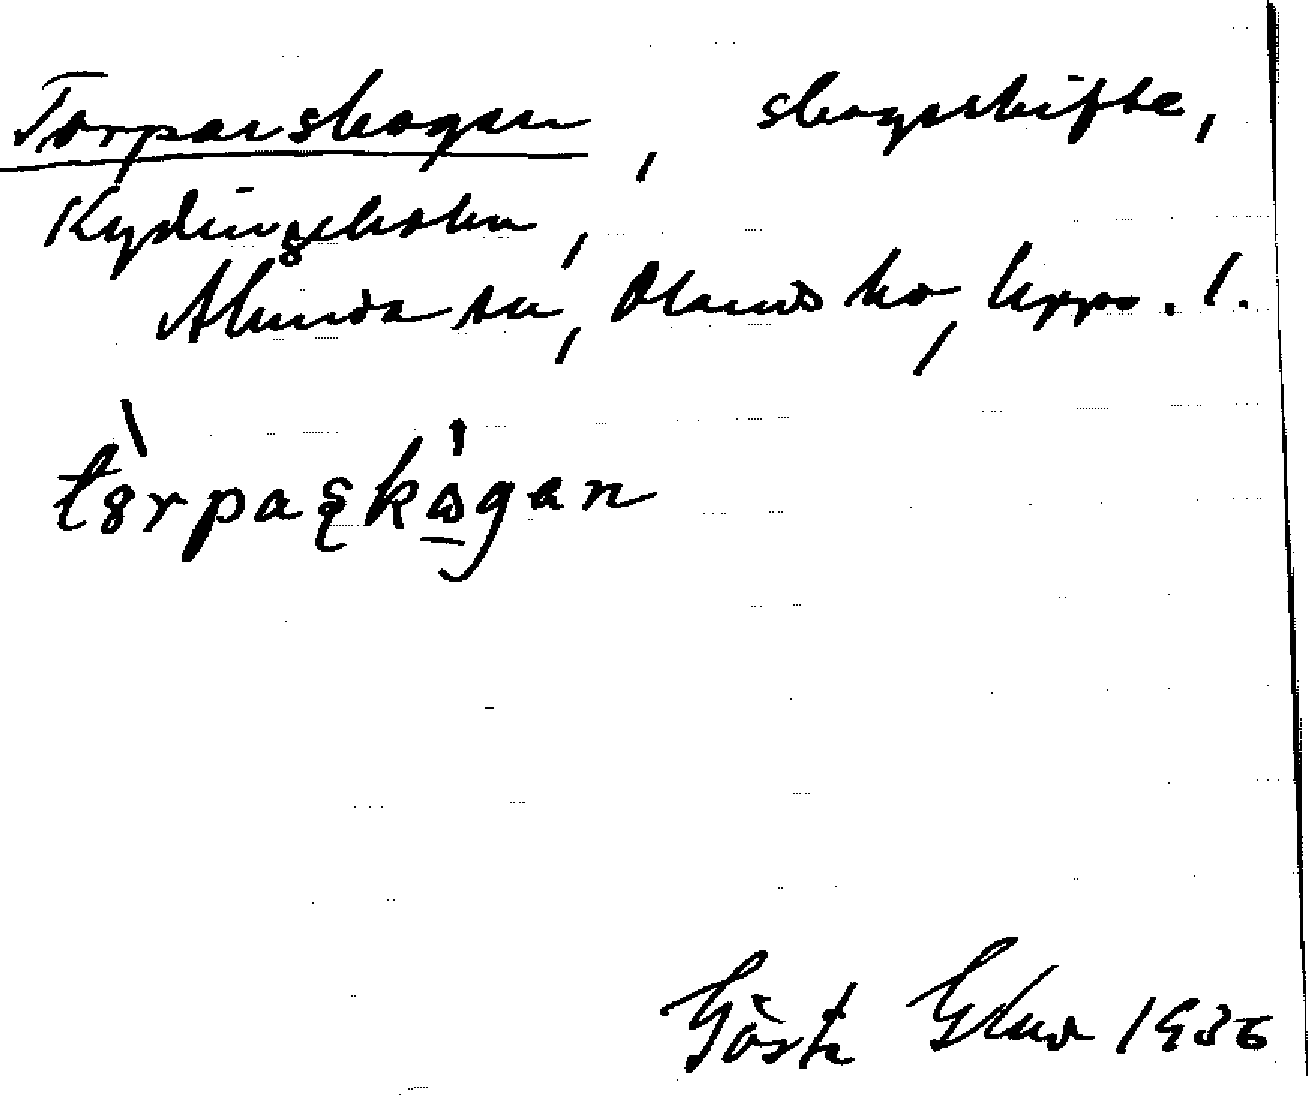 Torparskogen, skogsskifte,
Kydingeholm,
Alunda sn, Olands hd, Upps. l.
tòrpaʂkógan
Gösta 1936